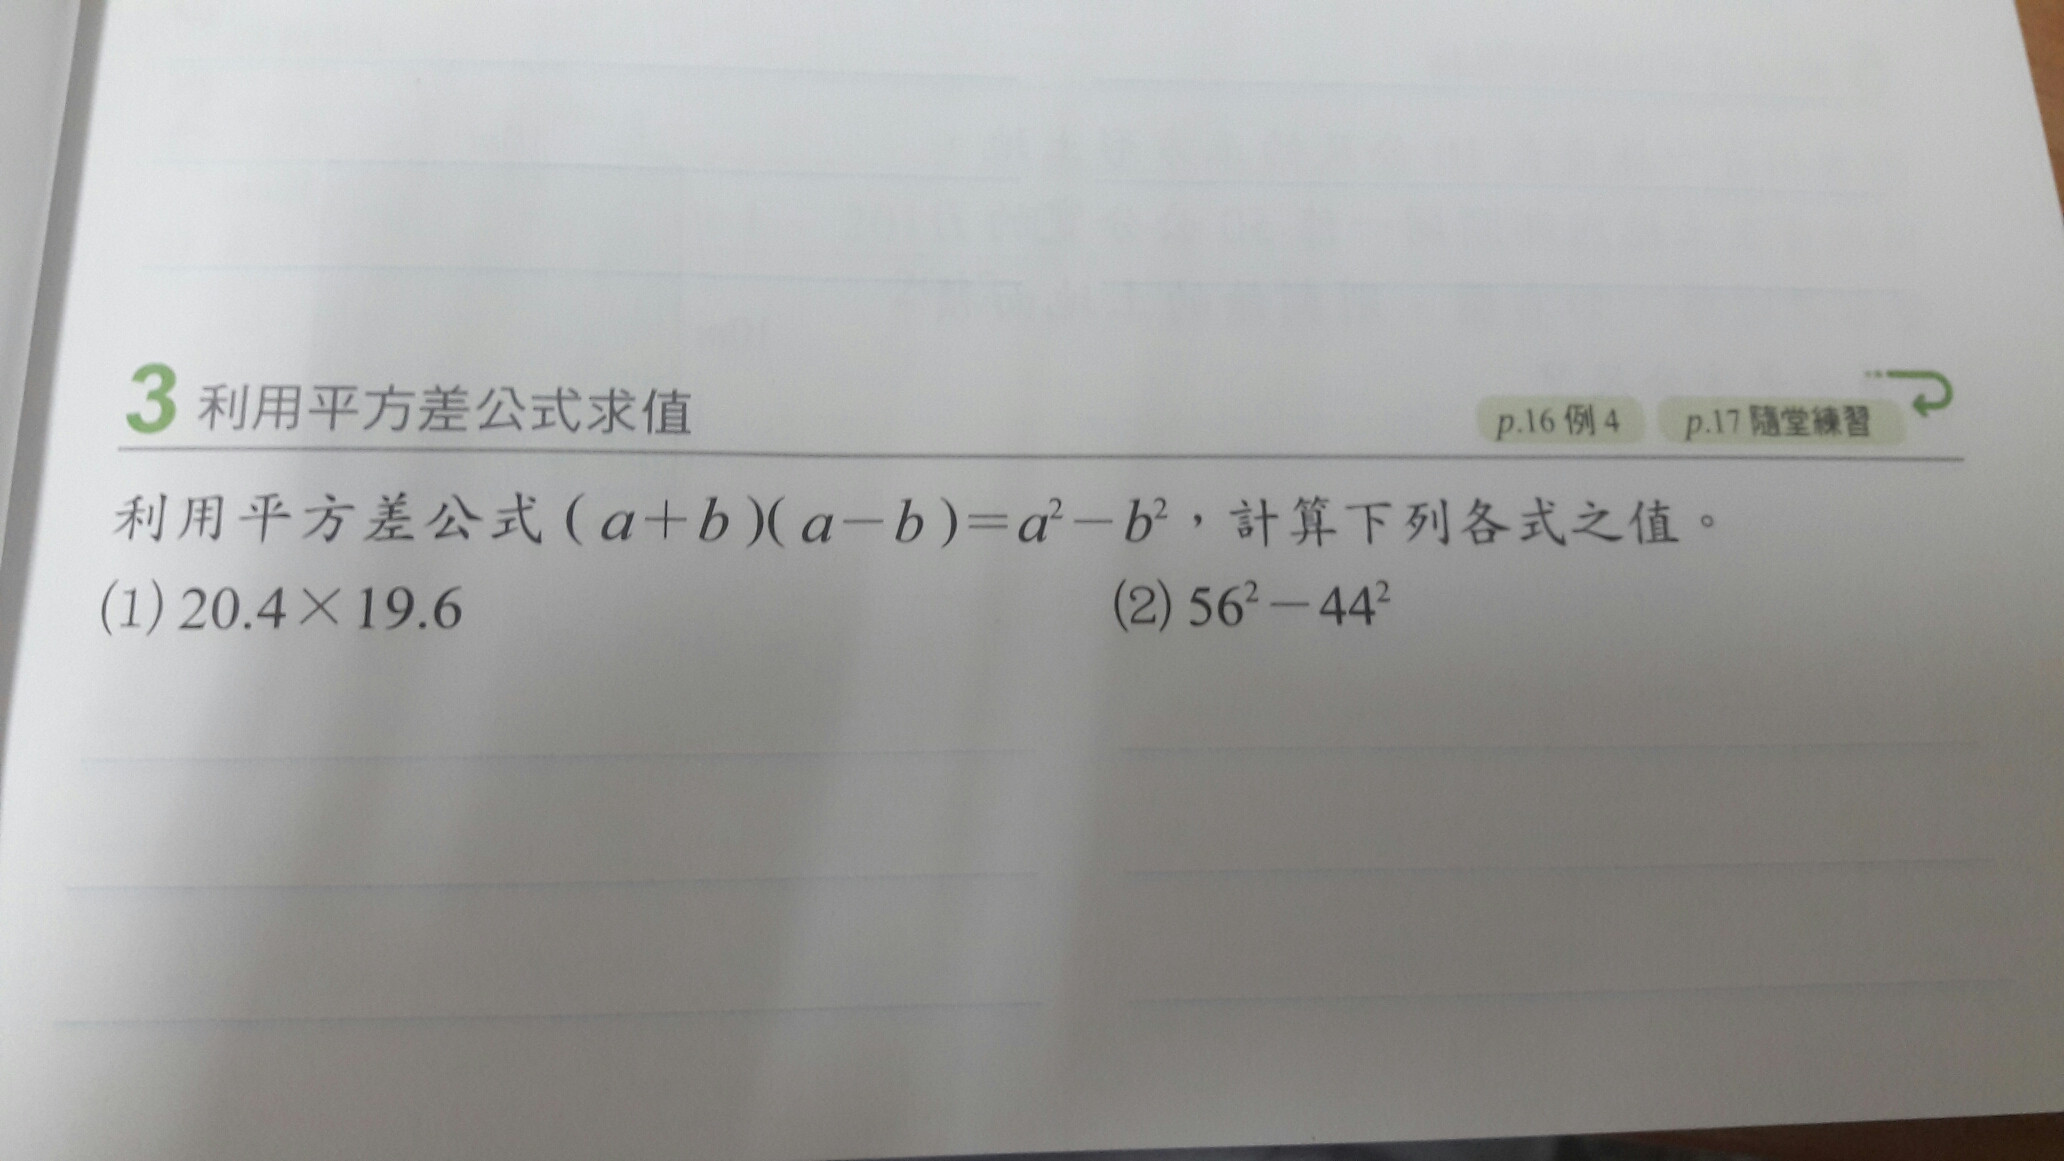 3 利用平方差公式求值
p.16 例 4 p.17 隨堂練習
利用平方差公式(a+b)(a-b)=a²-b²,計算下列各式之值。
(1) 20.4×19.6 (2) 56²-44²